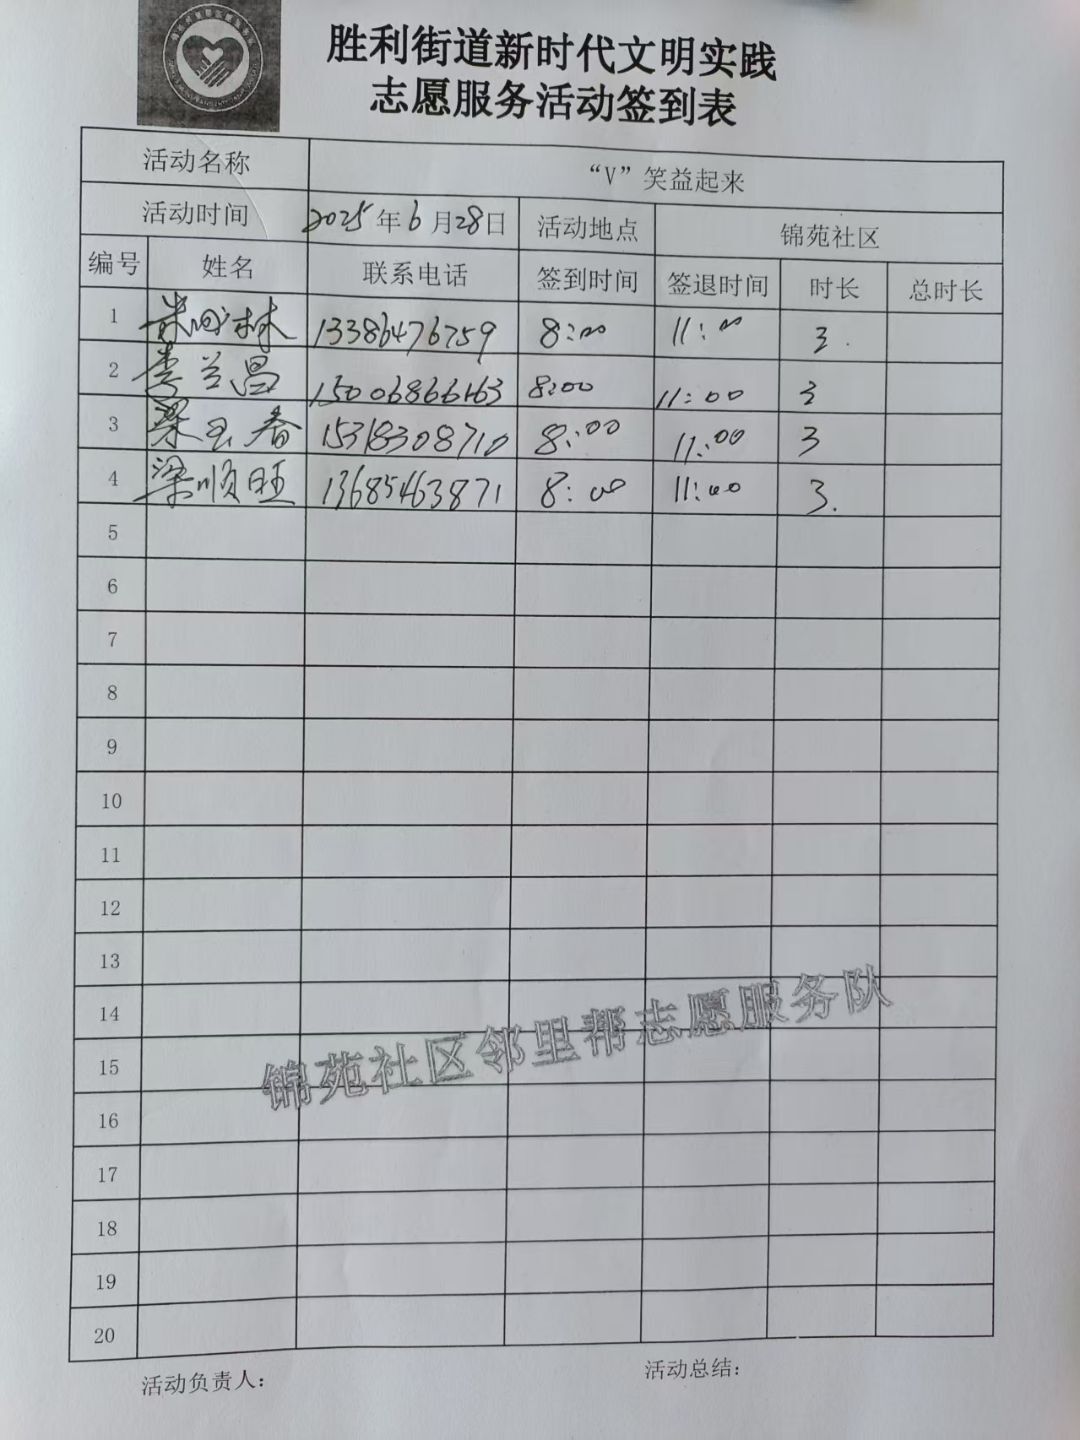 胜利街道新时代文明实践
志愿服务活动签到表
活动名称 “V”笑益起来
活动时间 2025年6月28日 活动地点 锦苑社区
编号 姓名 联系电话 签到时间 签退时间 时长 总时长
1 林 13386476759 8:00 11:00 3.
2 李兰昌 15006866163 8:00 11:00 3
3 梁玉春 15318308710 8:00 11:00 3
4 梁顺旺 13685463871 8:00 11:00 3.
5
6
7
8
9
10
11
12
13
14
锦苑社区邻里帮志愿服务队
15
16
17
18
19
20
活动负责人: 活动总结: